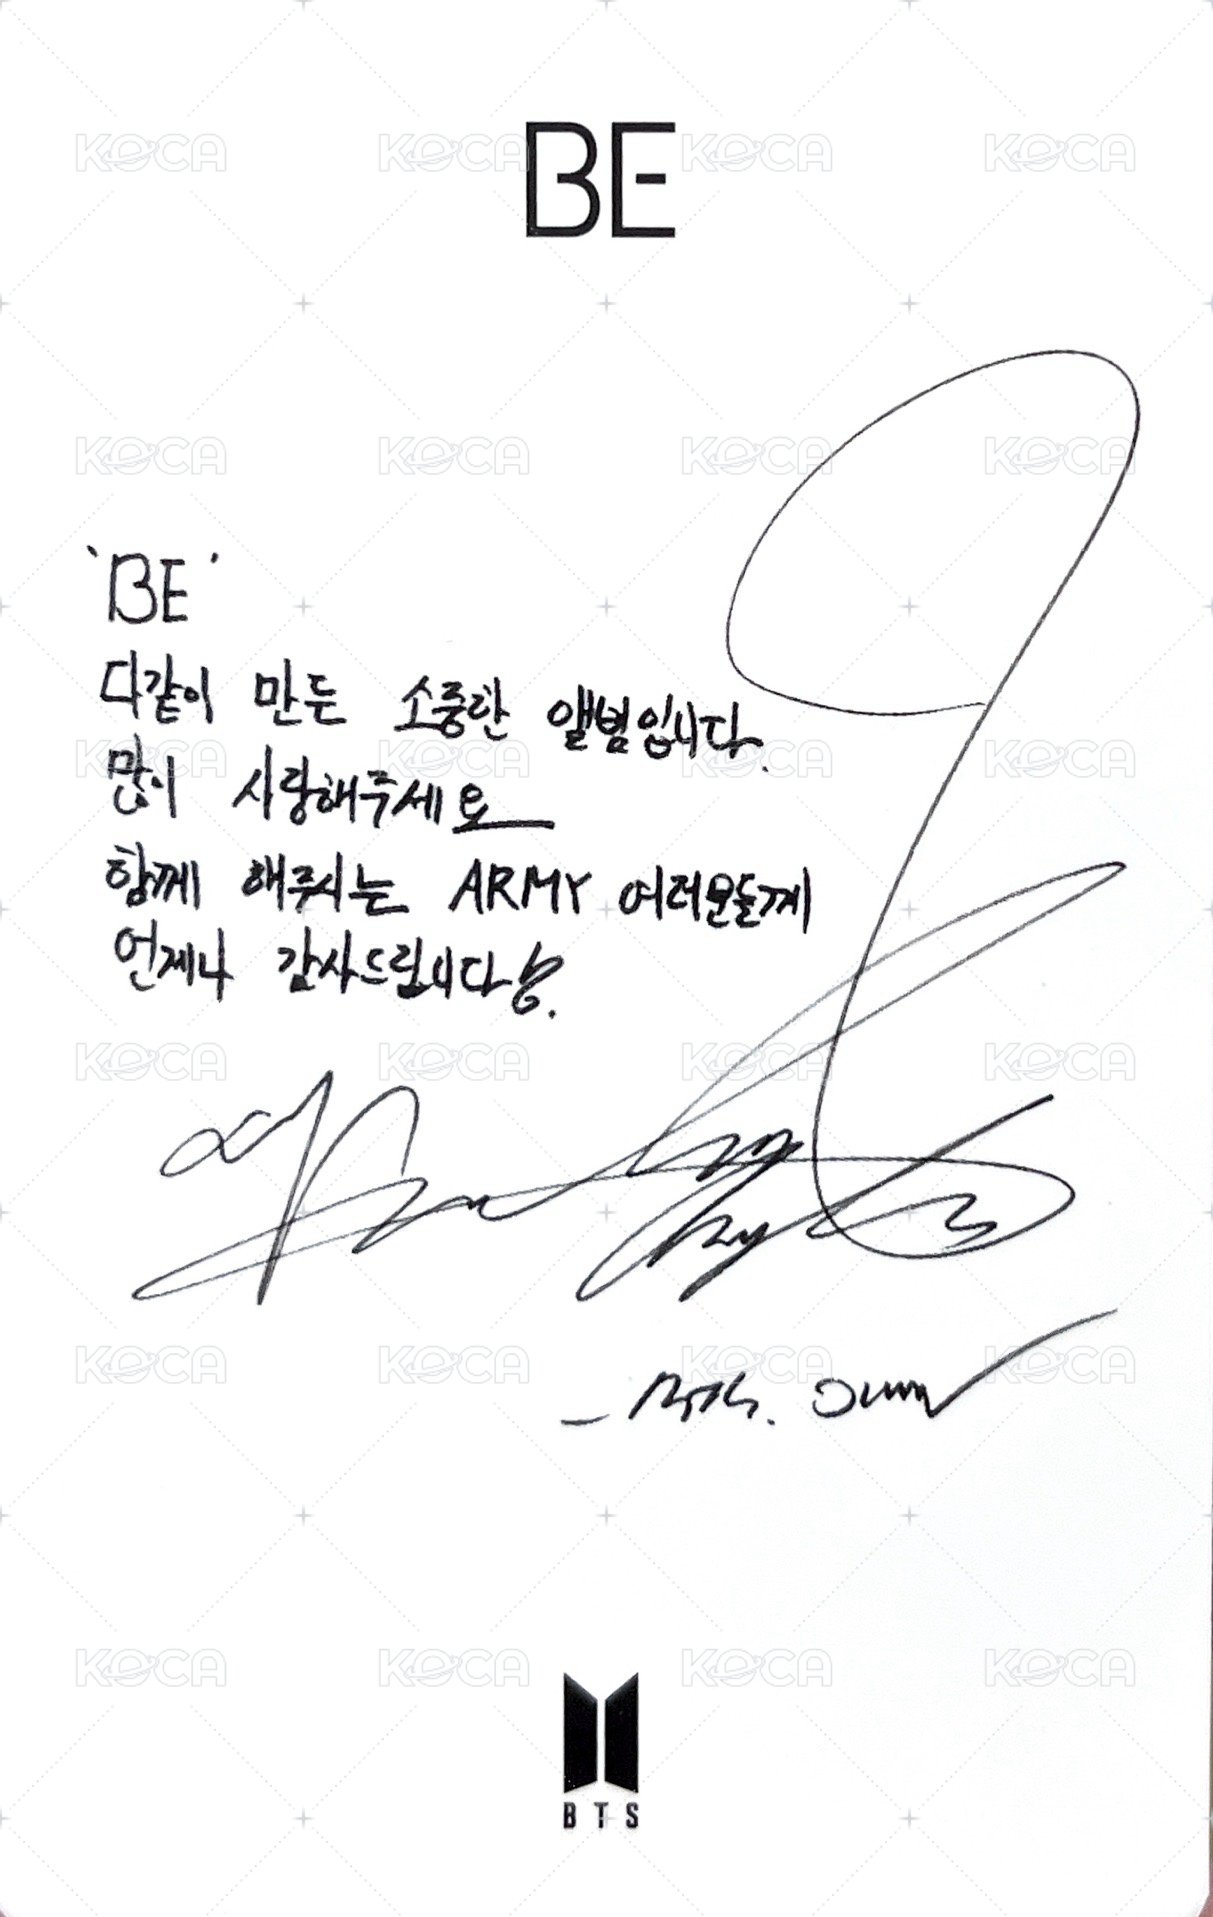 BE
'BE'
다같이 만든 소중한 앨범입니다.
많이 사랑해주세요
함께 해주시는 ARMY 여러분들께
언제나 감사드립니다
BTS
KOCA